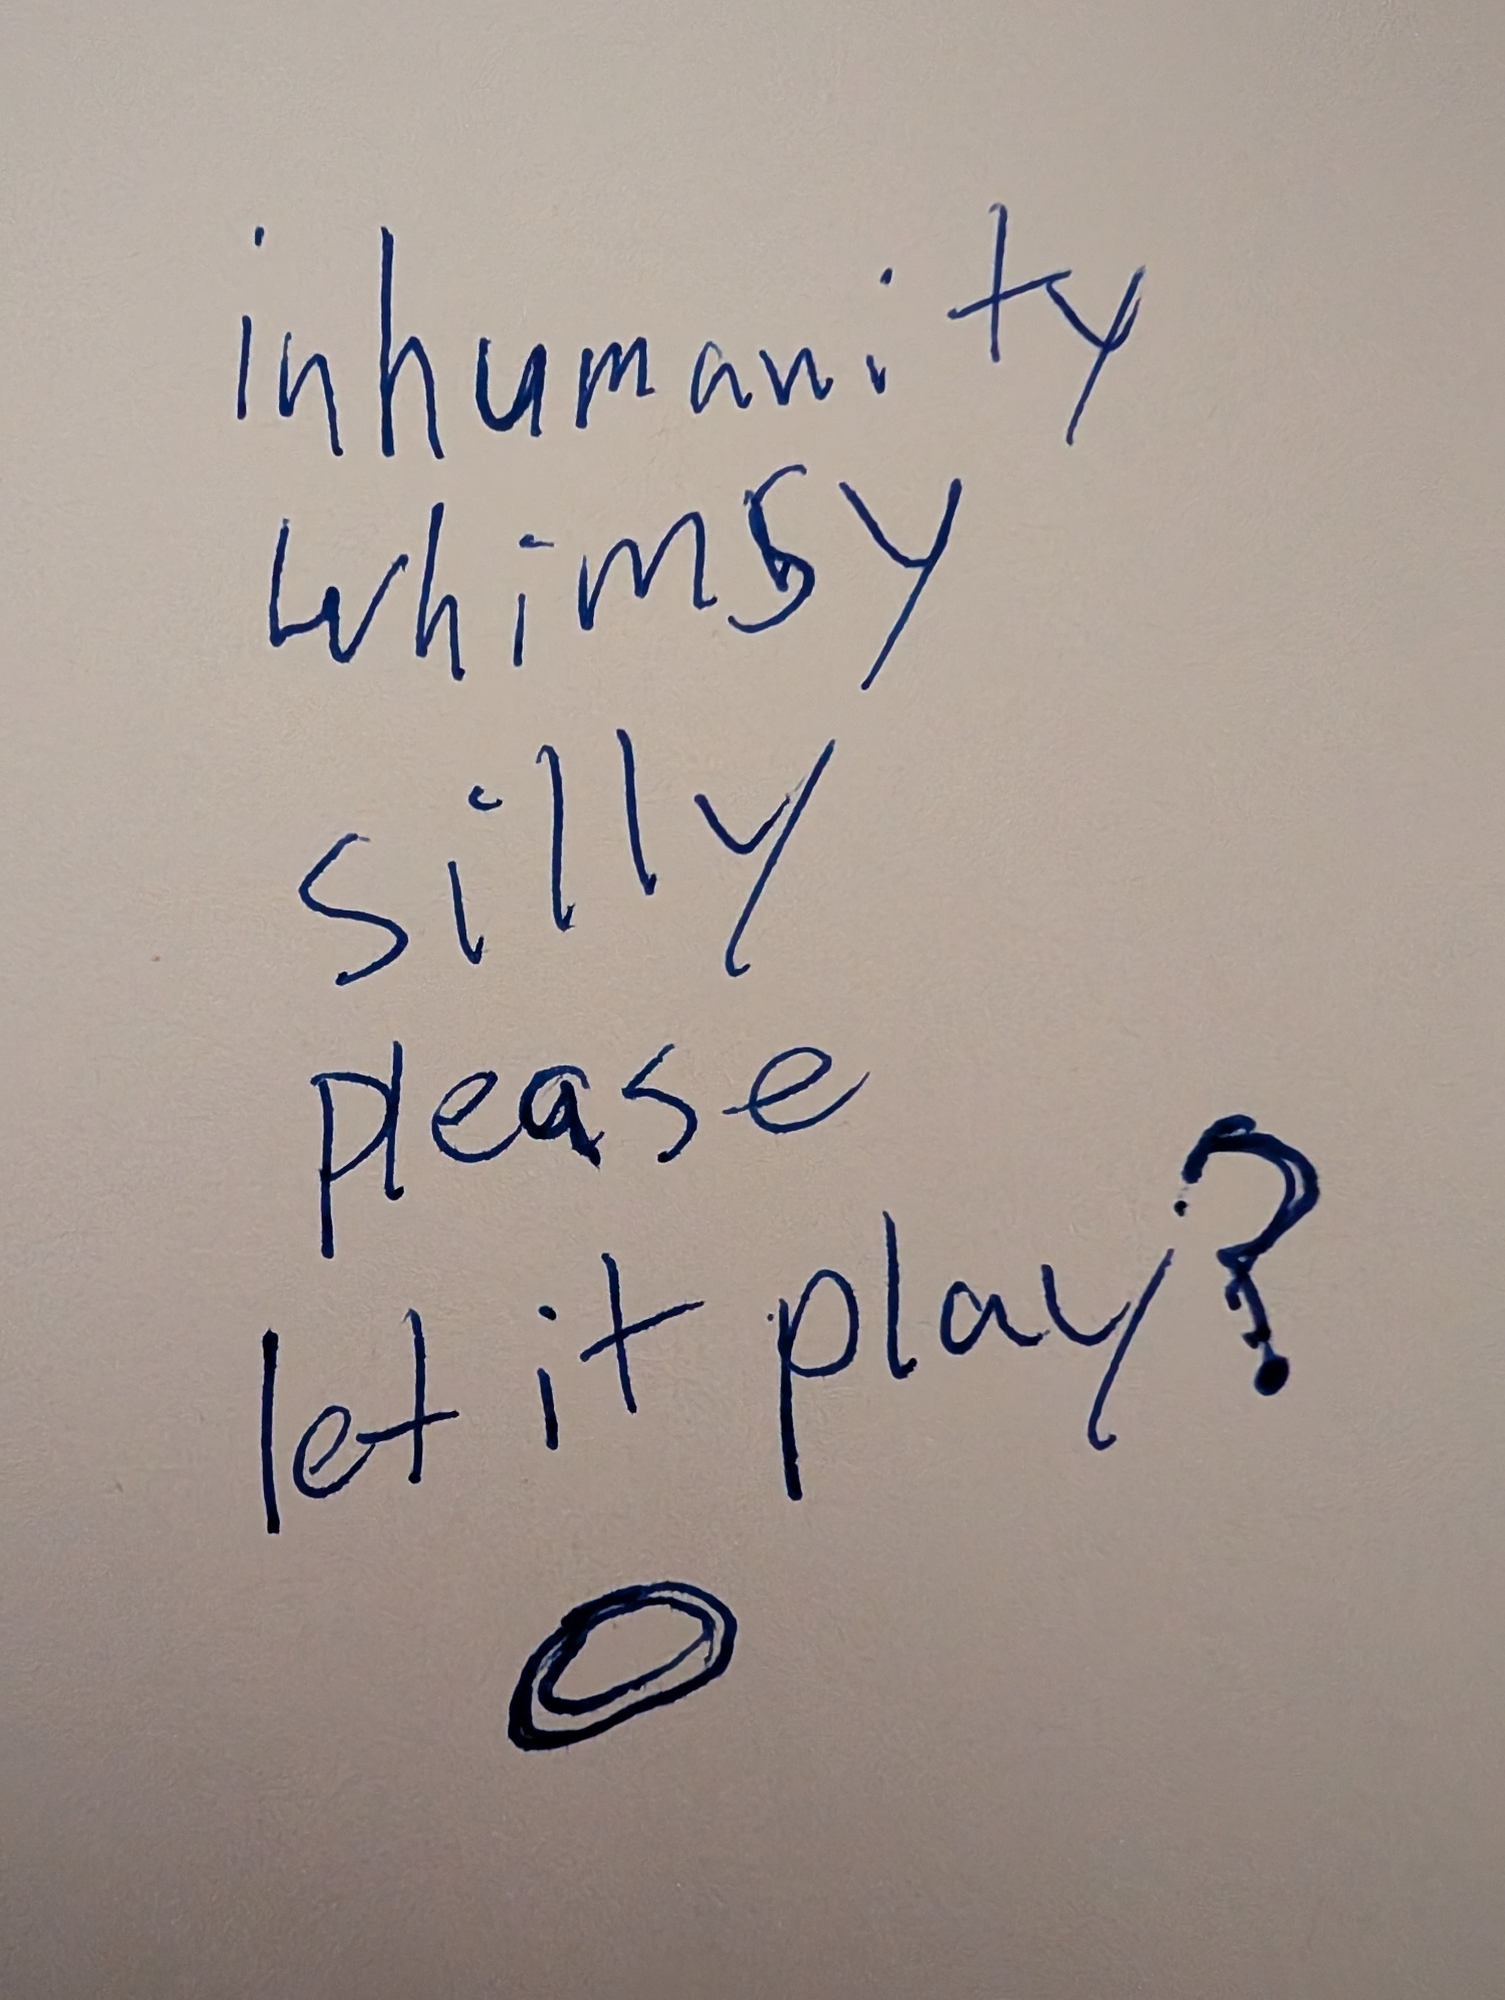 inhumanity
whimsy
silly
please
let it play?